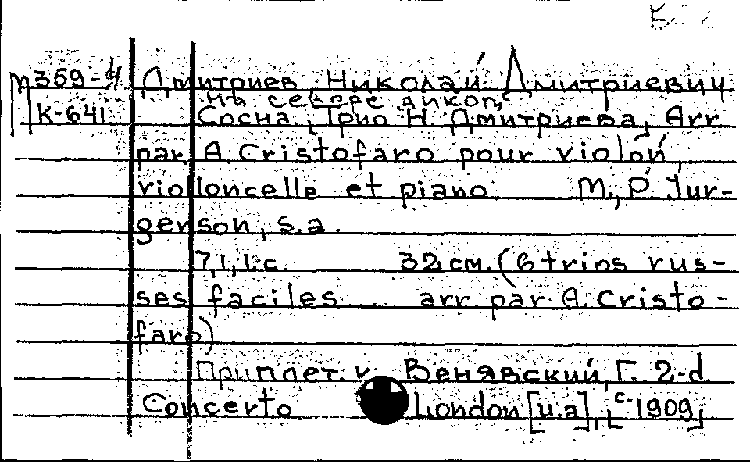 М359-4 Дмитриев Николай Дмитриевич
На севере диком,
К-641 Сосна, Трио Н. Дмитриева, Arr
par A. Cristofaro pour violon,
violloncelle et piano. M., P. Jur-
genson, s.a.
7,1,1 c. 32 см. (6 trios rus-
ses faciles arr par A. Cristo-
faro)
Приплет. к Венявский, Г. 2-d
Concerto London [u.a], [c. 1909]